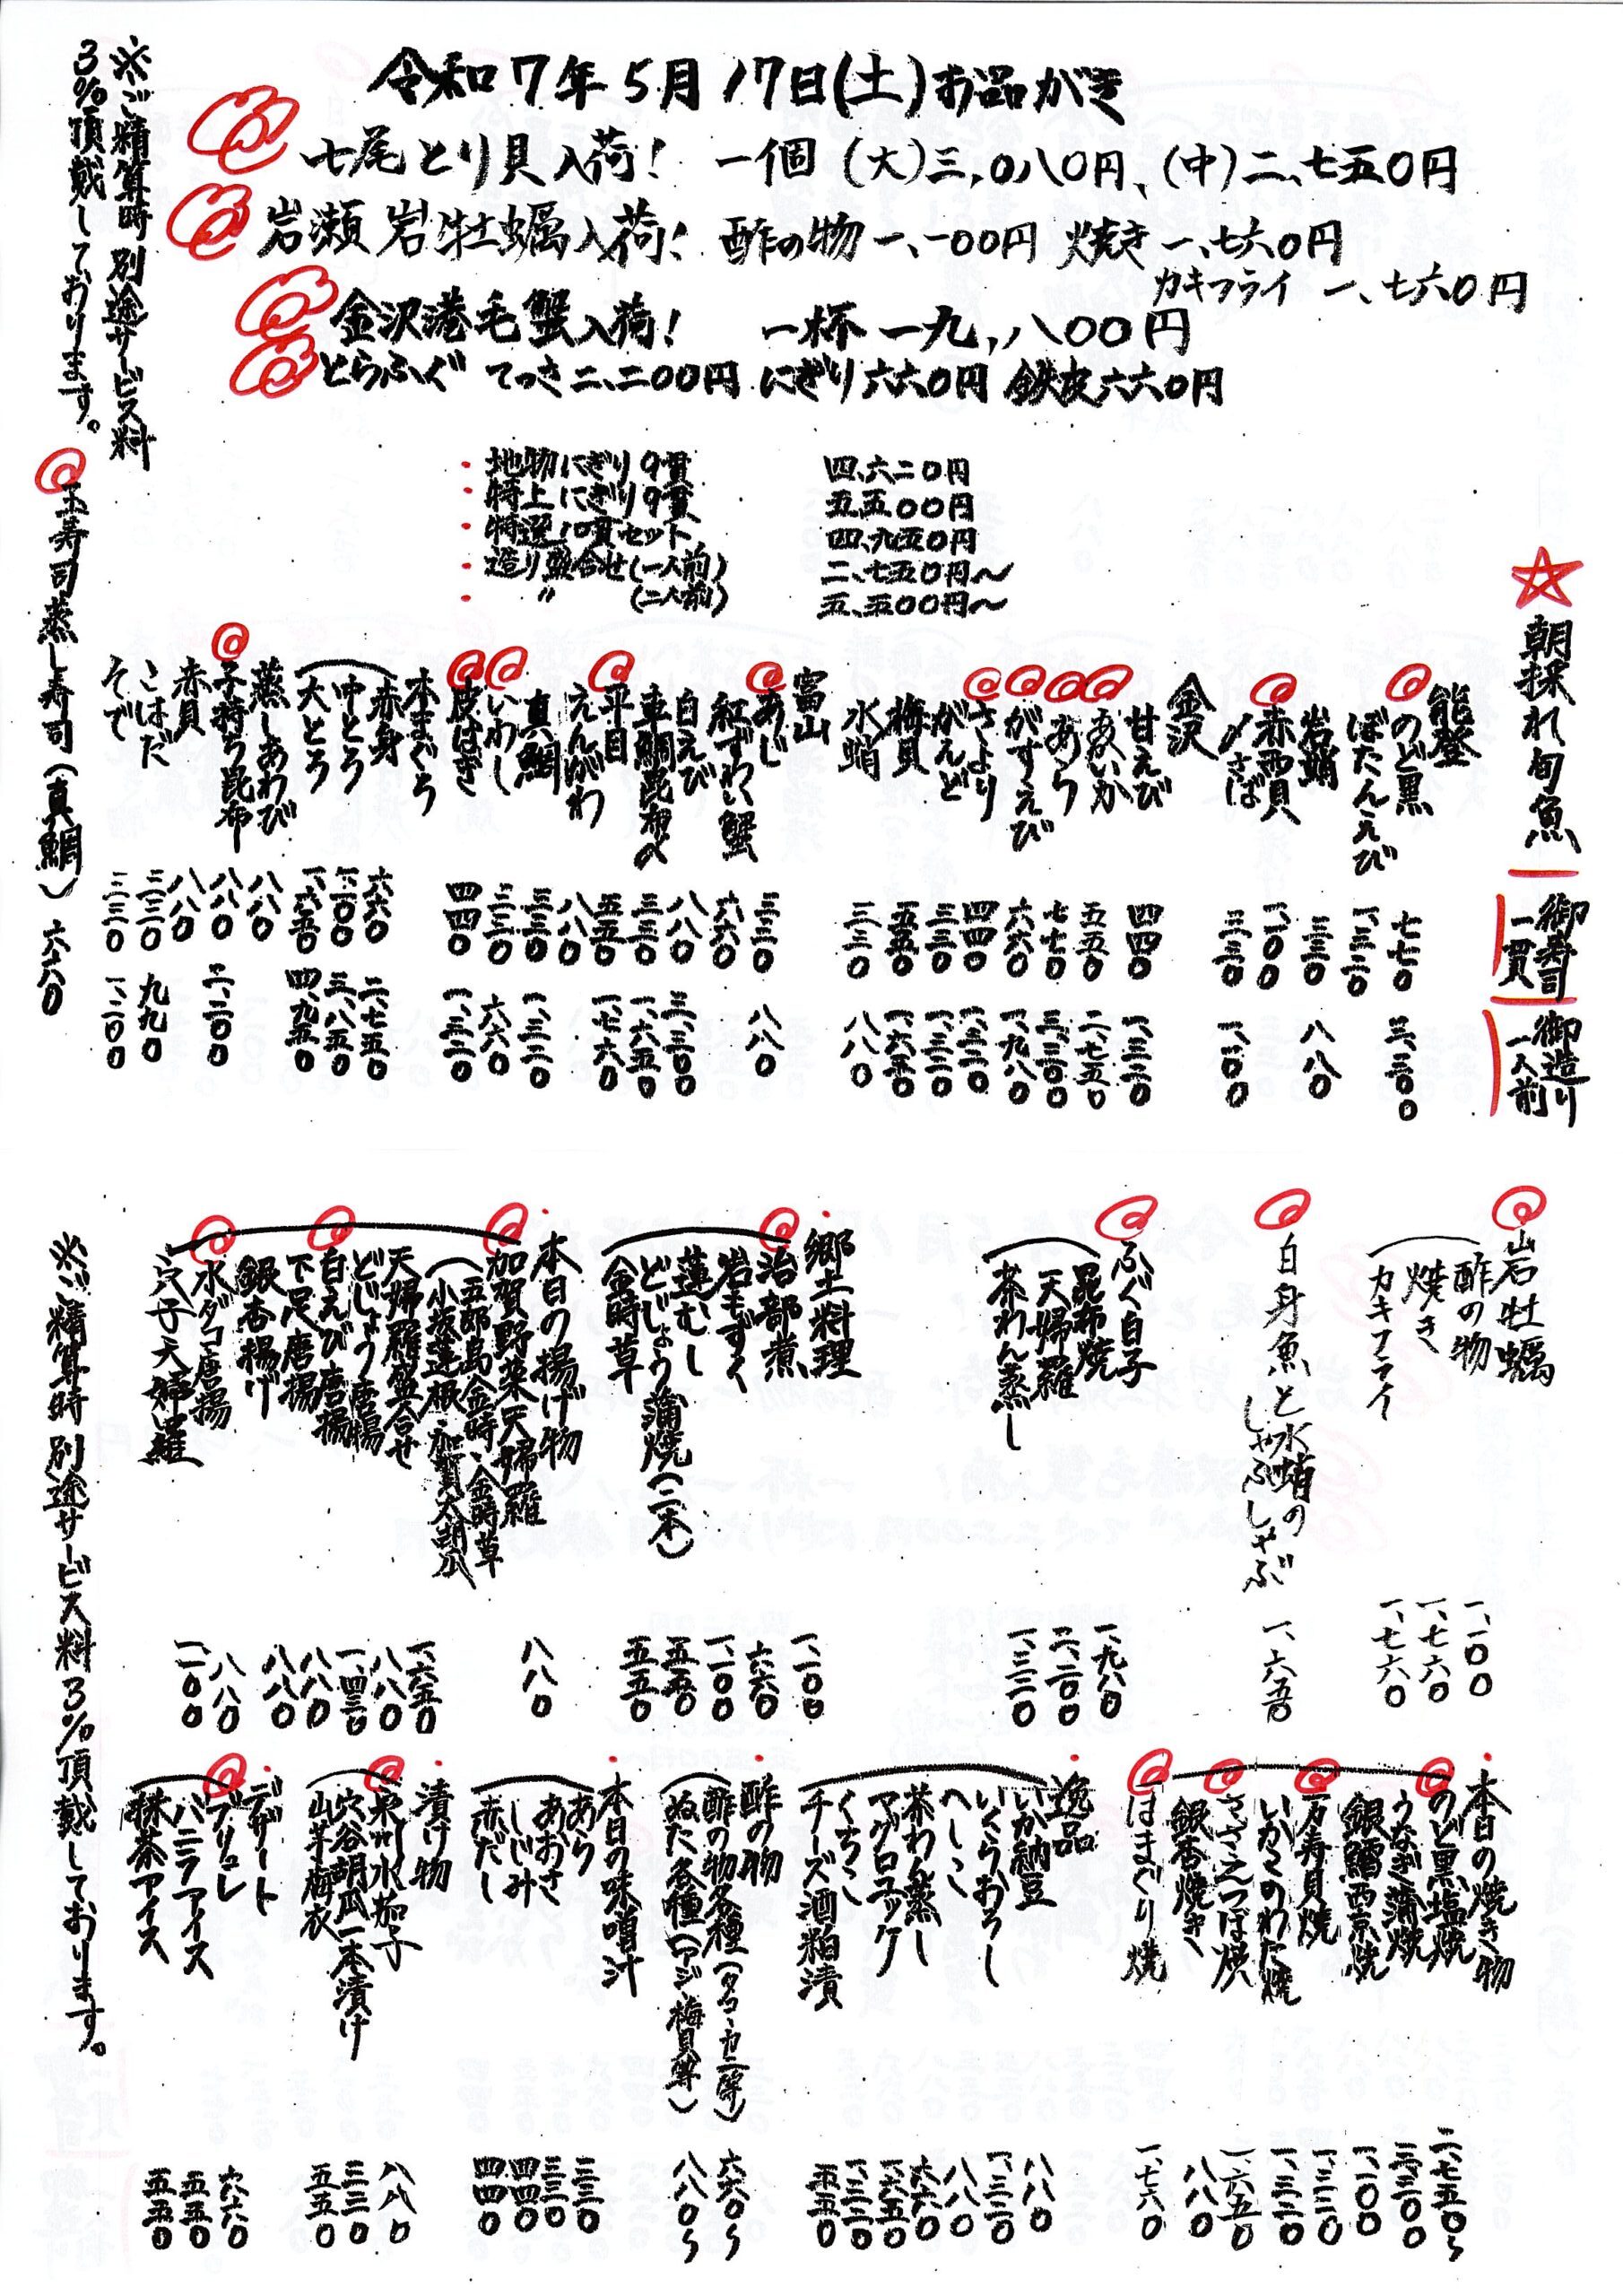 令和7年5月17日(土)お品がき
七尾とり貝入荷! 一個 (大)三,〇八〇円、(中)二、七五〇円
岩瀬 岩牡蠣入荷! 酢の物 一、一〇〇円 焼き 一、七六〇円
カキフライ 一、七六〇円
金沢港毛蟹入荷! 一杯 一九,八〇〇円
とらふぐ てっさ 二、二〇〇円 にぎり 六六〇円 鉄皮 六六〇円
・地物にぎり9貫 四、六二〇円
・特上にぎり9貫 五、五〇〇円
・特選10貫セット 四、九五〇円
・造り盛合せ(一人前) 二、七五〇円〜
・〃 (二人前) 五、五〇〇円〜
☆朝採れ旬魚 御寿司一貫 御造り一人前
能登
のど黒 七七〇 三、三〇〇
ぼたんえび 一、三二〇
岩蛸 三三〇 八八〇
赤西貝 一、一〇〇
〆さば 三三〇 一、一〇〇
金沢
甘えび 四四〇 一、三二〇
あおりいか 五五〇 二、七五〇
あら 七七〇 三、三〇〇
がすえび 六六〇 一、九八〇
さより 四四〇 一、三二〇
がんど 三三〇 一、三二〇
梅貝 五五〇 一、六五〇
水蛸 三三〇 八八〇
富山
あじ 三三〇 八八〇
紅ずわい蟹 六六〇
白えび 八八〇 三、三〇〇
車鯛昆布〆 三三〇 一、六五〇
平目 五五〇 一、七六〇
えんがわ 八八〇
真鯛 三三〇 一、三二〇
いわし 三三〇 六六〇
皮はぎ 四四〇 一、三二〇
本まぐろ
赤身 六六〇 二、七五〇
中とろ 一、一〇〇 三、八五〇
大とろ 一、六五〇 四、九五〇
蒸しあわび 八八〇
子持ち昆布 八八〇 二、二〇〇
赤貝 八八〇
こはだ 三三〇 九九〇
そで 三三〇 一、二〇〇
※ご精算時別途サービス料
3%頂戴しております。
玉寿司蒸し寿司(真鯛) 六八〇
岩牡蠣
酢の物 一、一〇〇
焼き 一、七六〇
カキフライ 一、七六〇
白身魚と水蛸の
しゃぶしゃぶ 一、六五〇
ふぐ白子
昆布焼 一、九八〇
天婦羅 二、二〇〇
茶わん蒸し 一、三二〇
郷土料理
治部煮 一、一〇〇
岩もずく 六六〇
蓮むし 一、一〇〇
どじょう蒲焼(二本) 五五〇
金時草 五五〇
本日の揚げ物
加賀野菜天婦羅 八八〇
(五郎島金時、金時草
小坂蓮根、加賀太胡瓜)
天婦羅盛合せ 一、六五〇
どじょう唐揚 八八〇
白えび唐揚 一、四三〇
下足唐揚 八八〇
銀杏揚げ 八八〇
水ダコ唐揚 八八〇
穴子天婦羅 一、一〇〇
本日の焼き物
のど黒塩焼 二、七五〇〜
うなぎ蒲焼 三、三〇〇
銀鱈西京焼 一、一〇〇
万寿貝焼 一、三二〇
いかくのわた焼 一、三二〇
さざえつぼ焼 一、六五〇
銀杏焼き 八八〇
はまぐり焼 一、七六〇
逸品
いか納豆 八八〇
いくらおろし 一、三二〇
へしこ 八八〇
茶わん蒸し 六六〇
マグロユッケ 一、六五〇
くちこ 一、三二〇
チーズ酒粕漬 五五〇
酢の物
酢の物各種(タコ・カニ等) 六六〇〜
ぬた各種(アジ・梅貝等) 八八〇〜
本日の味噌汁
あら 三三〇
あおさ 三三〇
しじみ 四四〇
赤だし 四四〇
漬け物
泉州水茄子 八八〇
穴谷胡瓜一本漬け 三三〇
山芋梅衣 五五〇
デザート
ブリュレ 六六〇
バニラアイス 五五〇
抹茶アイス 五五〇
※ご精算時別途サービス料3%頂戴しております。